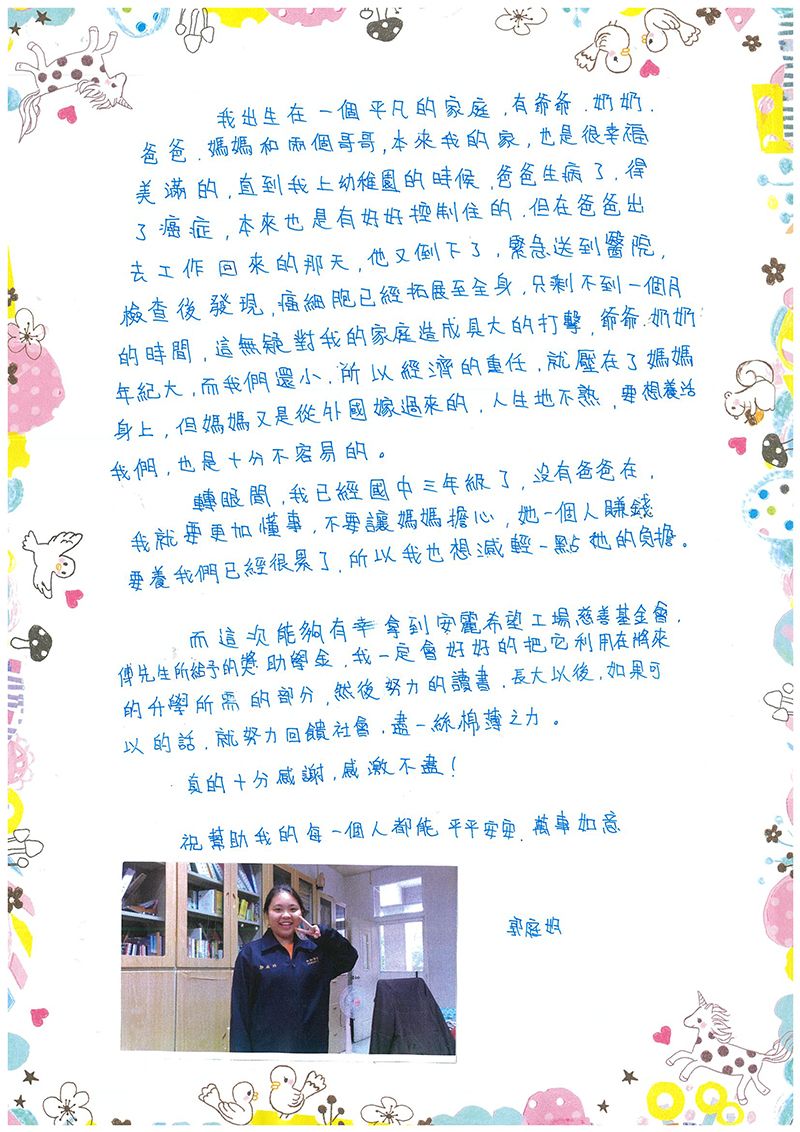 我出生在一個平凡的家庭,有爺爺、奶奶、
爸爸、媽媽和兩個哥哥,本來我的家,也是很幸福
美滿的,直到我上幼稚園的時候,爸爸生病了,得
了癌症,本來也是有好好控制住的,但在爸爸出
去工作回來的那天,他又倒下了,緊急送到醫院,
檢查後發現,癌細胞已經拓展至全身,只剩不到一個月
的時間,這無疑對我的家庭造成具大的打擊,爺爺、奶奶
年紀大,而我們還小,所以經濟的重任,就壓在了媽媽
身上,但媽媽又是從外國嫁過來的,人生地不熟,要想養活
我們,也是十分不容易的。
轉眼間,我已經國中三年級了,沒有爸爸在,
我就要更加懂事,不要讓媽媽擔心,她一個人賺錢
要養我們已經很累了,所以我也想減輕一點她的負擔。
而這次能夠有幸拿到安麗希望工場慈善基金會,
傅先生所給予的獎助學金,我一定會好好的把它利用在將來
的升學所需的部分,然後努力的讀書,長大以後,如果可
以的話,就努力回饋社會,盡一絲棉薄之力。
真的十分感謝,感激不盡!
祝幫助我的每一個人都能平平安安、萬事如意
郭庭